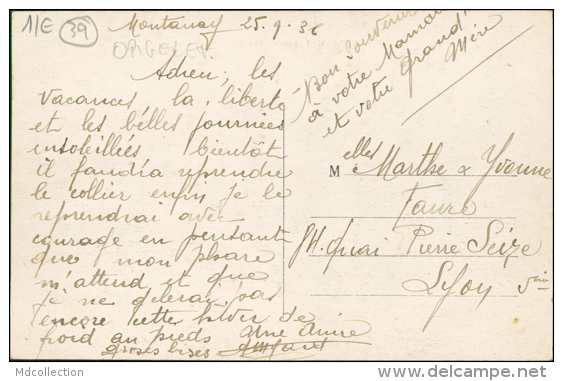 1/E 39
Montanay 25.9.36
ORGELET.
Bon souvenir
à votre Maman
et votre Grand'
Mère
Adieu, les
vacances la liberté
et les belles journées
ensoleillées bientôt
il faudra reprendre
le collier enfin je le
reprendrai avec
courage en pensant
que mon phare
m'attend et que
je ne gelerai pas
encore cette hiver de
froid au pieds Une amie
Groses bises
Melles Marthe & Yvonne
Faure
quai Pierre Seize
Lyon 5ème
Mdcollection
delcampe.net